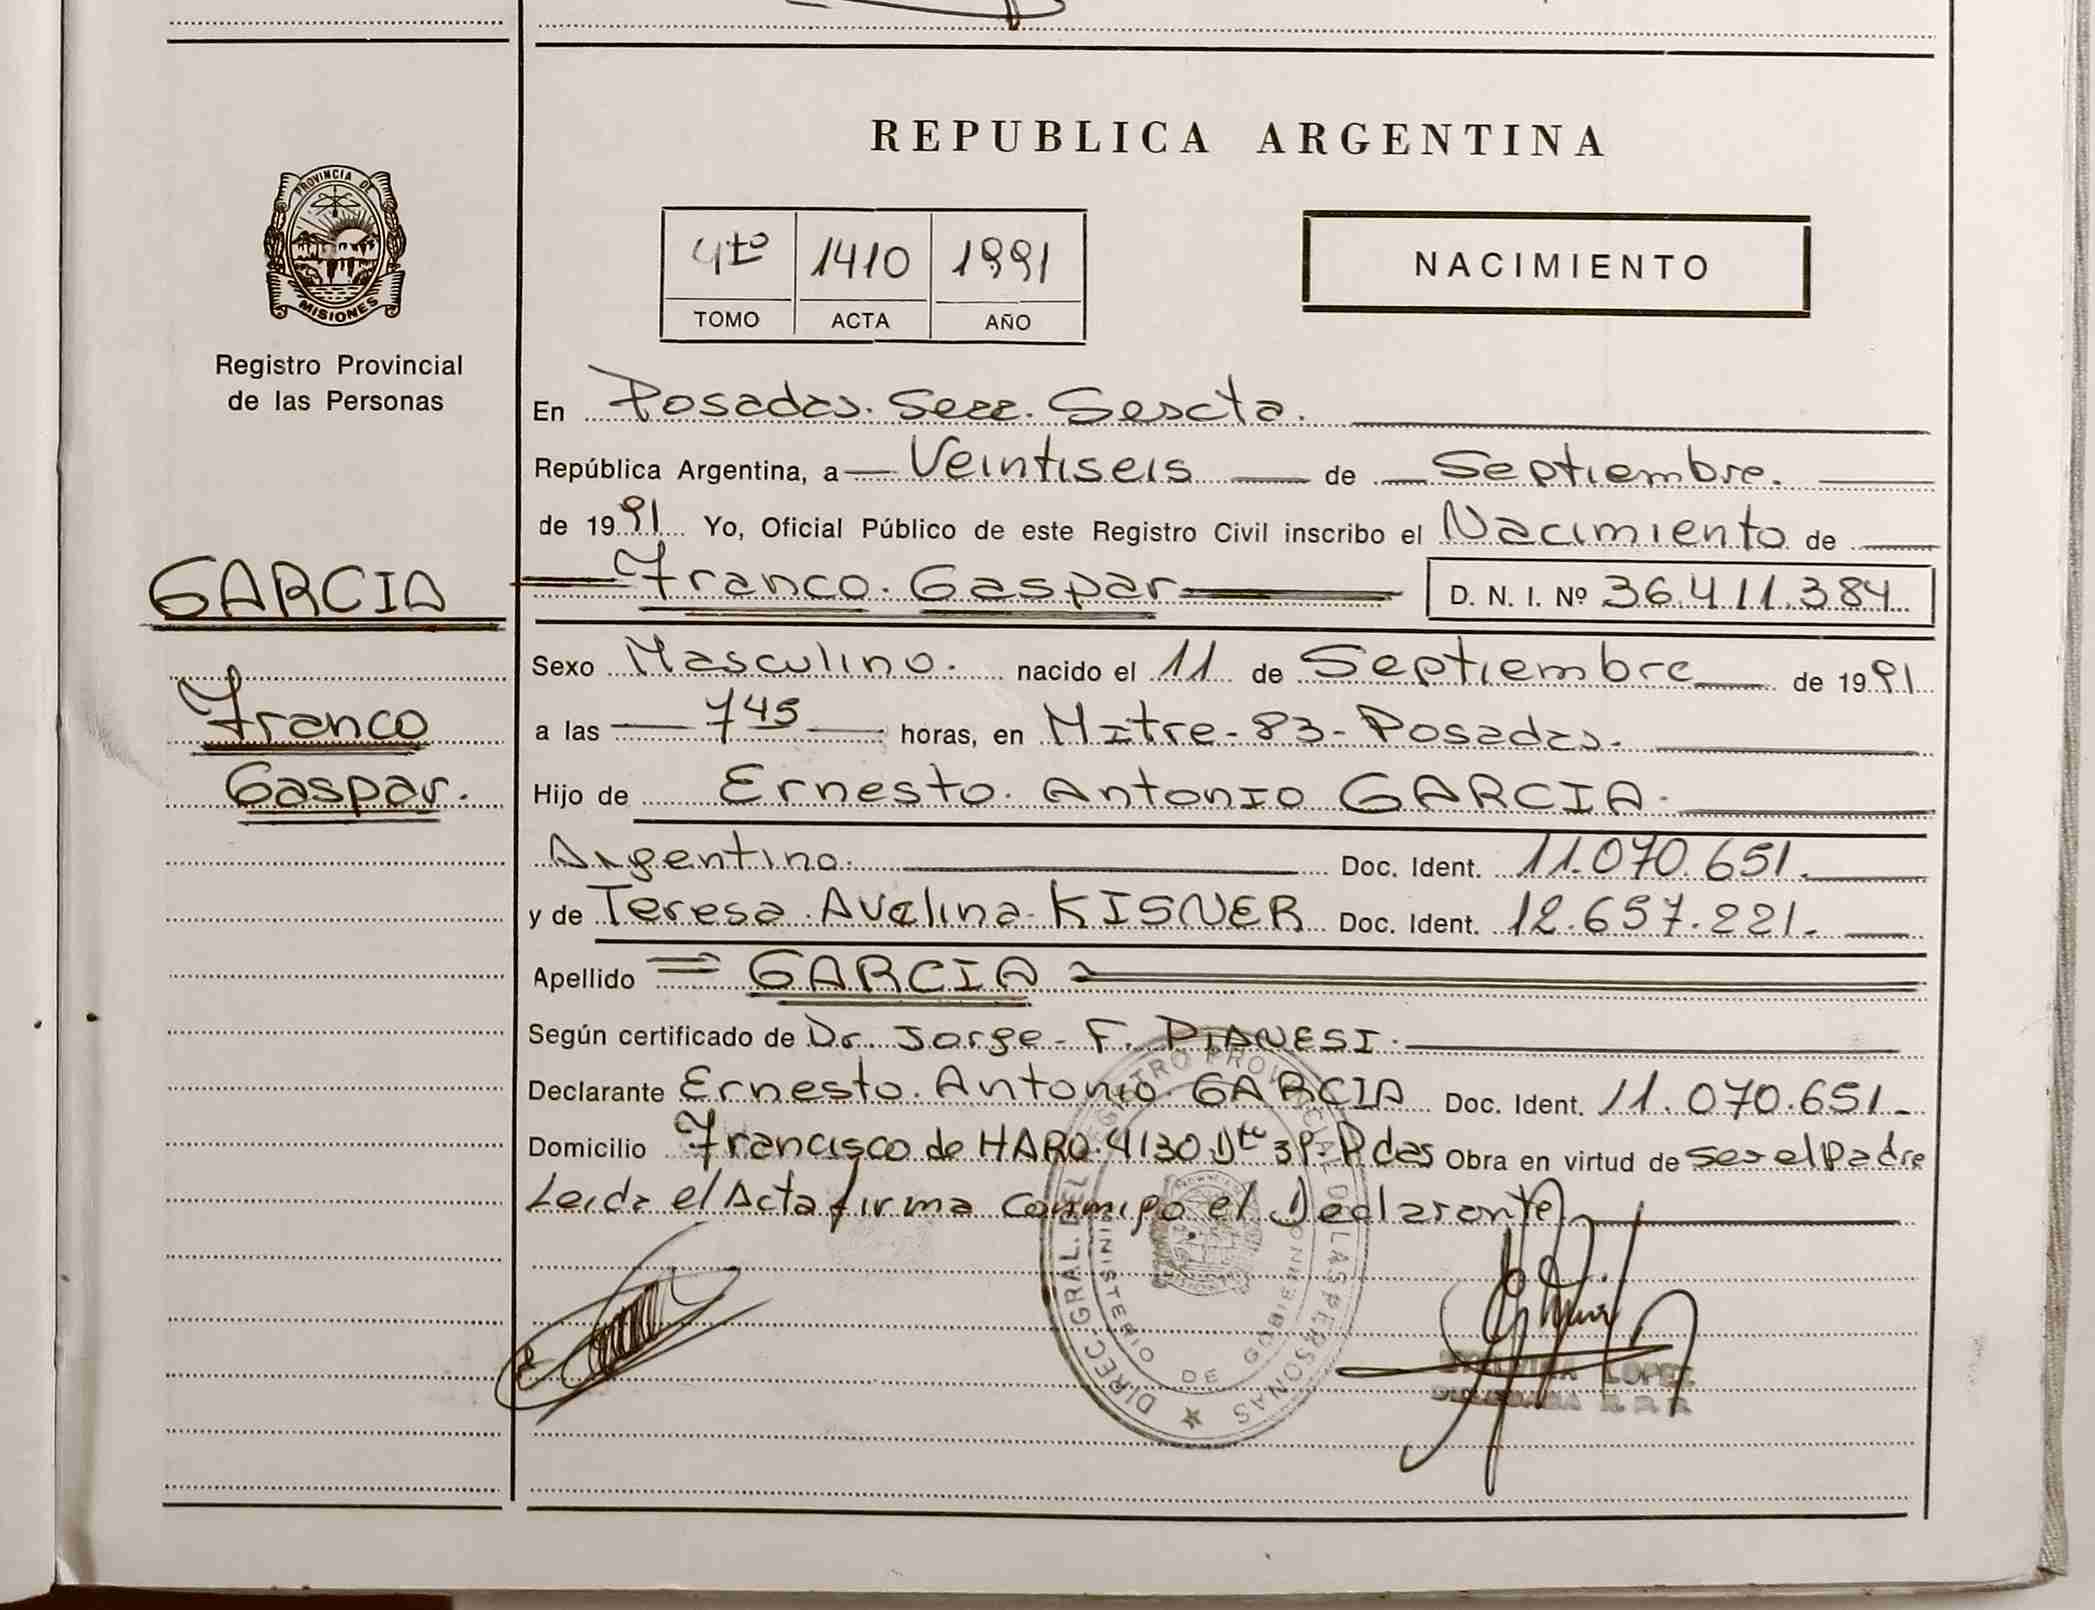 REPUBLICA ARGENTINA
PROVINCIA DE
MISIONES
Registro Provincial
de las Personas
4to 1410 1991
TOMO ACTA AÑO
NACIMIENTO
En Posadas. Secc. Sescta.
República Argentina, a Veintiseis de Septiembre.
de 1991 Yo, Oficial Público de este Registro Civil inscribo el Nacimiento de
GARCIA
Franco Gaspar.
Franco. Gaspar D. N. I. Nº 36.411.384
Sexo Masculino. nacido el 11 de Septiembre de 1991
a las 7 45 horas, en Mitre - 83 - Posadas.
Hijo de Ernesto. Antonio GARCIA.
Argentino. Doc. Ident. 11.070.651.
y de Teresa Avelina KISNER Doc. Ident. 12.657.221.
Apellido = GARCIA =
Según certificado de Dr. Jorge - F. PIANESI.
Declarante Ernesto. Antonio GARCIA Doc. Ident. 11.070.651.
Domicilio Francisco de HARO. 4130 Dte 3P. Pdas Obra en virtud de ser el Padre
Leida el Acta firma conmigo el Declarante
DIREC. GRAL. DEL REGISTRO PROVINCIAL DE LAS PERSONAS
MINISTERIO DE GOBIERNO
LOPEZ